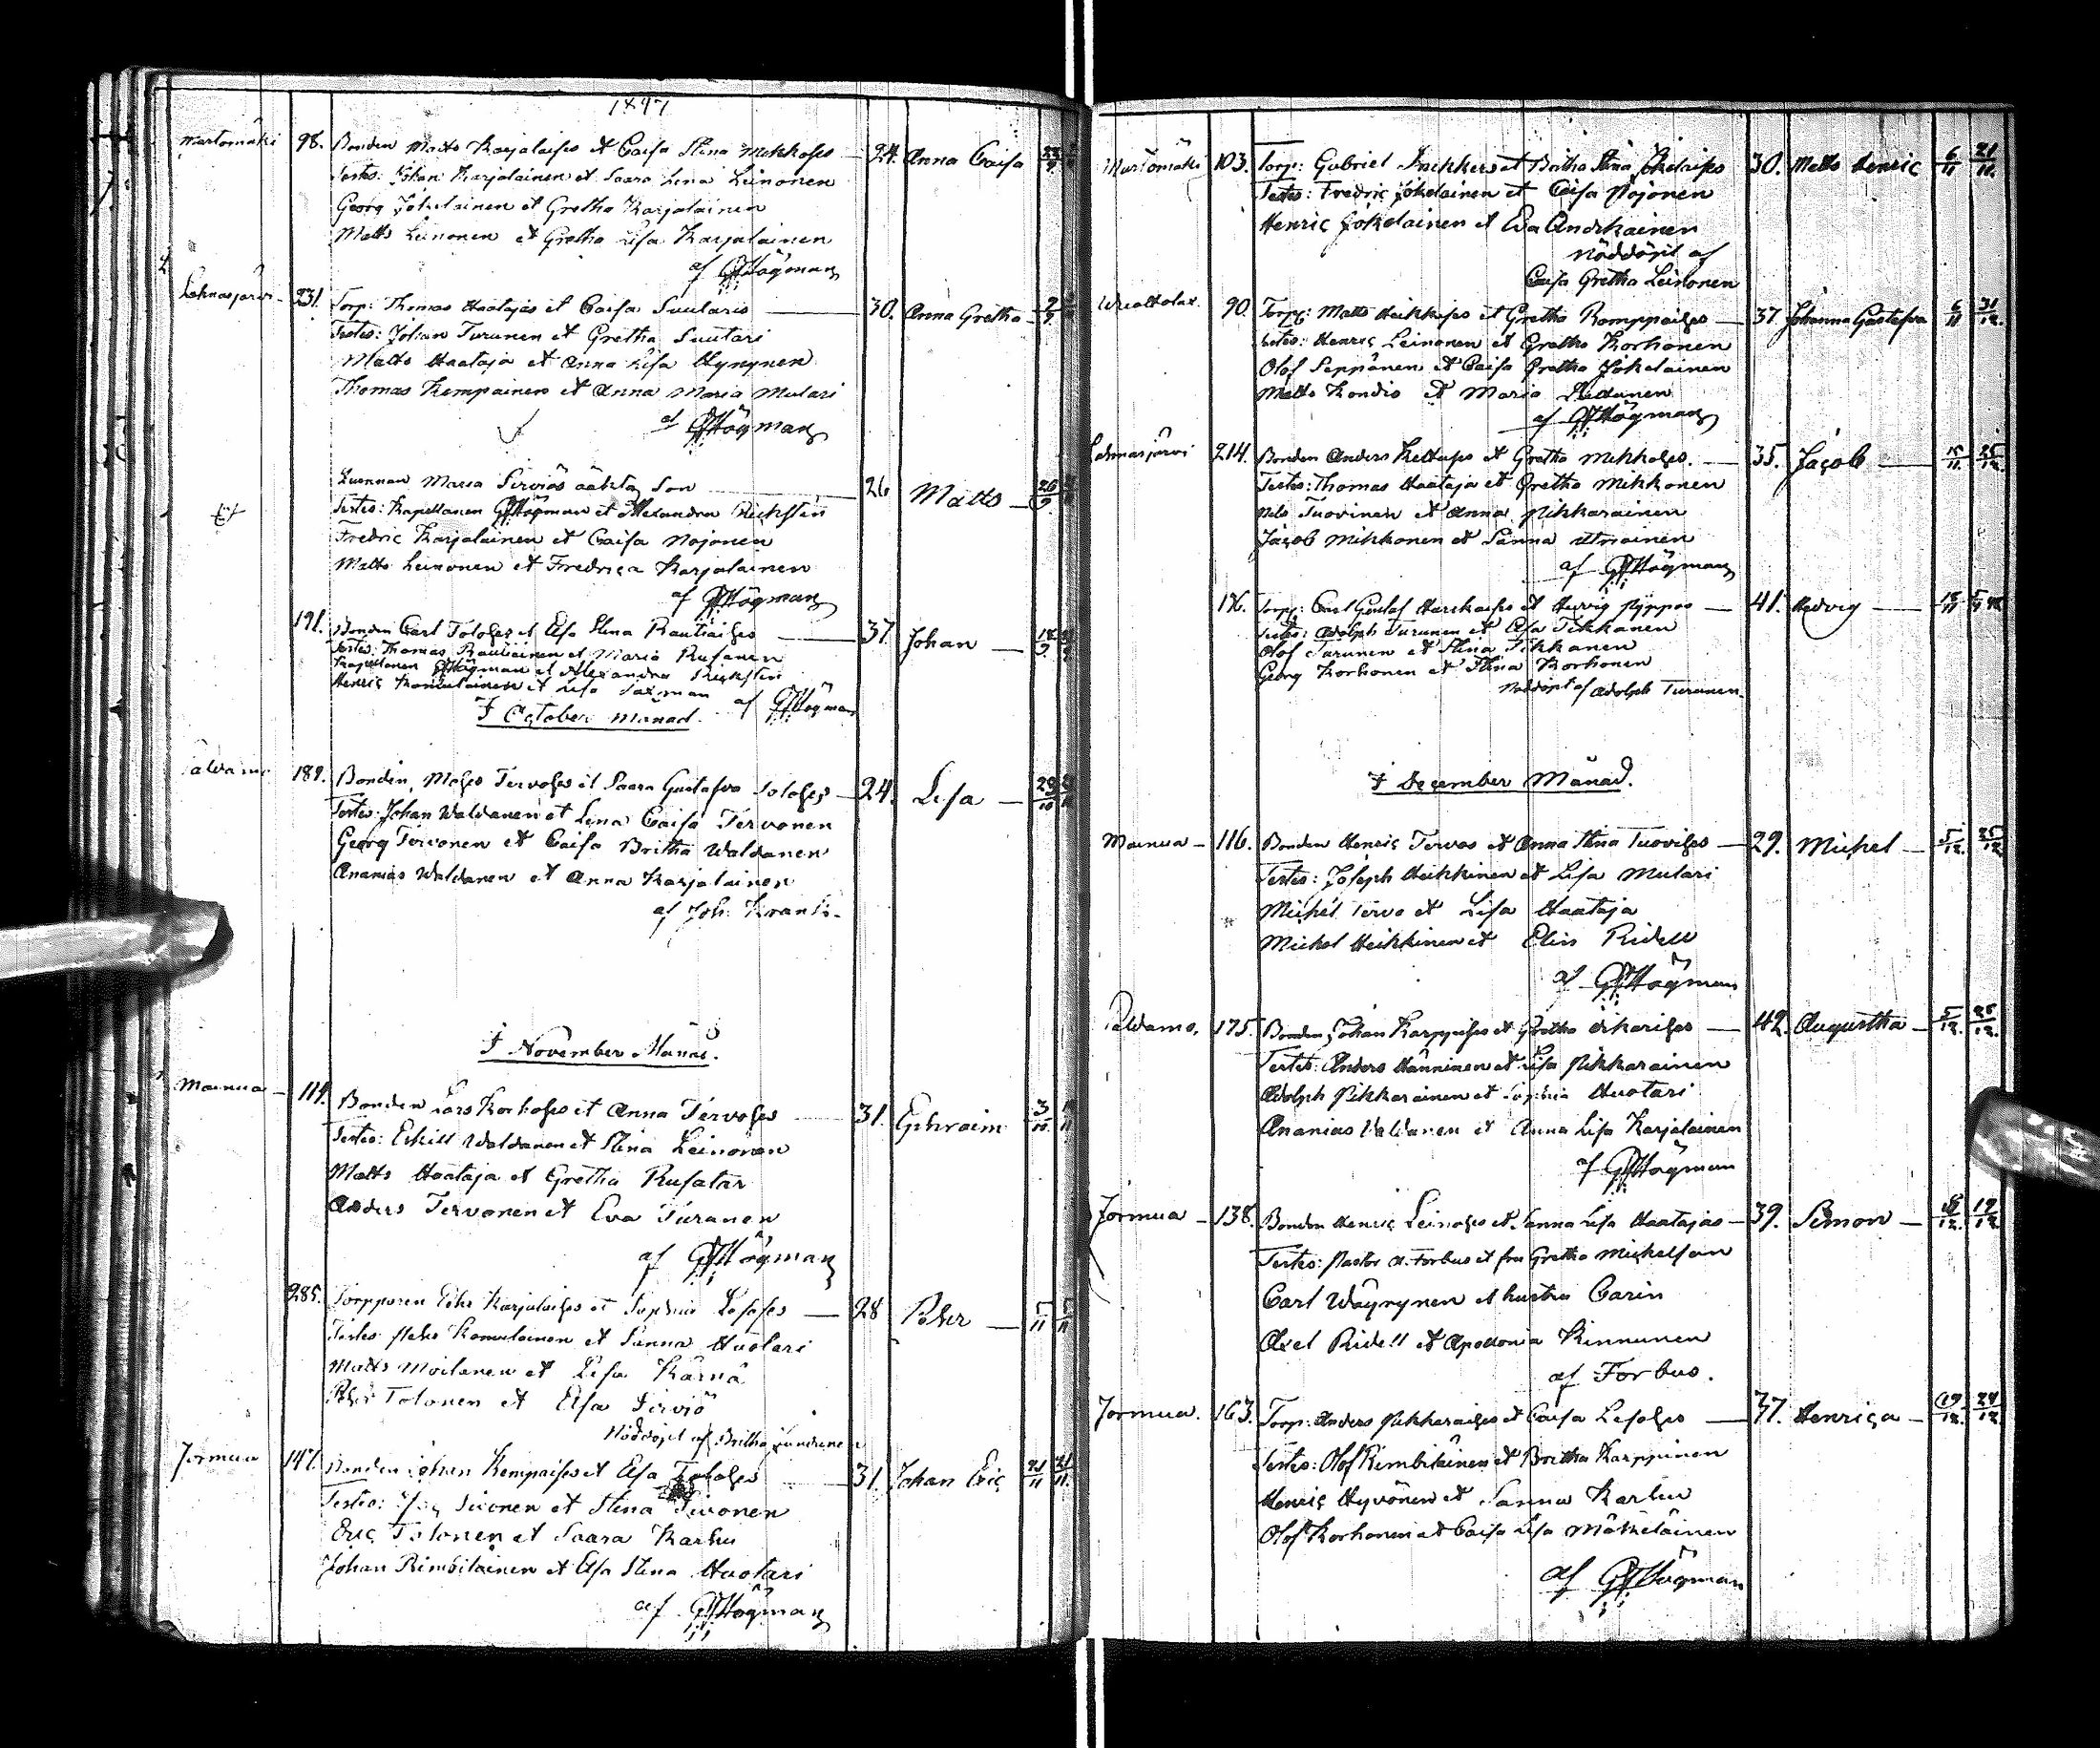 1847
Martomäki 98. Bonden Matts Karjalaises et Caisa Stina Mikkoses 24. Anna Caisa
Testes: Johan Karjalainen et Saara Lena Leinonen
Georg Jokelainen et Gretha Karjalainen
Matts Leinonen et Gretha Lisa Karjalainen
af Högman
Lehmasjärvi 231. Torp: Thomas Haatajas et Caisa Suutaris 30. Anna Gretha
Testes: Johan Turunen et Gretha Suutari
Matts Haataja et Anna Lisa Hyrynen
Thomas Kempainen et Anna Maria Mulari
af Högman
Qvinnan Maria Sirviös oäkta Son 26 Matts 26/9
Testes: Kapellanen Högman et Alexandra
Fredric Karjalainen et Caisa Nojonen
Matts Leinonen et Fredrica Karjalainen
af Högman
191. Bonden Carl Toloses et Elsa Stina Rautiaises 37. Johan
Testes: Thomas Rautiainen et Maria Rusanen
Kapellanen Högman et Alexandra
Henric Komulainen et Lisa Saxman
af Högman
I October Månad.
189. Bonden Moses Tervoses et Saara Gustafva Toloses 24. Lisa 29/10
Testes: Johan Waldanen et Lena Caisa Tervonen
Georg Tervonen et Caisa Britha Waldanen
Ananias Waldanen et Anna Karjalainen
af Joh: Krank
I November Månad.
Mainua 114. Bonden Lars Korhoses et Anna Tervoses 31. Ephraim
Testes: Eskill Waldanen et Stina Leinonen
Matts Haataja et Gretha Rusatar
Anders Tervonen et Eva Turanen
af Högman
285. Torpparen Pehr Karjalaises et Sophia 28 Peter 5/11 5/11
Testes: Pehr Komulainen et Sanna Huotari
Matts Moilanen et Lisa Kärnä
Peter Tolonen et Elsa Sirviö
Nöddöpt af Britha
Jormua 147. Bonden Johan Kempaises et Elsa Toloses 31. Johan Eric 21/11 21/11
Testes: Sivonen et Stina Sivonen
Eric Tolonen et Saara Karhu
Johan Rimbiläinen et Elsa Stina Huotari
af Högman
Martomäki 103. Torp: Gabriel et Britha Stina Jokelaises 30. Matts Henric 6/11 21/11
Testes: Fredric Jokelainen et Caisa Nojonen
Henric Jokelainen et Eva Anderkainen
Nöddöpt af
Caisa Gretha Leinonen
90. Torp: Matts Heikkises et Gretha Romppaises 37 Johanna Gustafva 6/11 31/12
Testes: Henric Leinonen et Gretha Korhonen
Olof Seppänen et Caisa Gretha Jokelainen
Matts Kondio et Maria
af Högman
Lehmasjärvi 214. Bonden Anders et Gretha Mikkoses. 35. Jacob
Testes: Thomas Haataja et Gretha Mikkonen
Nils Tuovinen et Anna Pikkarainen
Jacob Mikkonen et Sanna Atriainen
af Högman
Torp: Carl Gustaf et Hervig Pyppos 41. Hedvig
Testes: Adolph Turunen et Elsa Tikkanen
Olof Turunen et Stina Tikkanen
Georg Korhonen et Stina Korhonen
Nöddöpt af Adolph Turunen
I December Månad.
Mainua 116. Bonden Henric Tervos et Anna Stina Tuovises 29. Michel 5/12 25/12
Testes: Joseph Heikkinen et Lisa Mulari
Michel Tervo et Lisa Haataja
Michel Heikkinen et Elin Ridell
af Högman
Paldamo, 175. Bonden Johan Karppises et Gretha 42. Augustha 5/12 25/12
Testes: Anders Hänninen et Lisa Pikkarainen
Adolph Pikkarainen et Sophia Huotari
Ananias Waldanen et Anna Lisa Karjalainen
af Högman
Jormua 138. Bonden Henric Leinoses et Sanna Lisa Haatajas 39. Simon 18/12 19/12
Testes: Pastor A. Forbus et fru Gretha Michelson
Carl Wäyrynen et hustru Carin
Axel Ridell et Apollonia Kinnunen
af Forbus.
Jormua. 163. Torp: Anders Pikkaraises et Caisa 37. Henrica 19/12 24/12
Testes: Olof Rimbiläinen et Britha Karppinen
Henric Hyvönen et Sanna Karhu
Olof Korhonen et Caisa Lisa Mätheläinen
af Högman